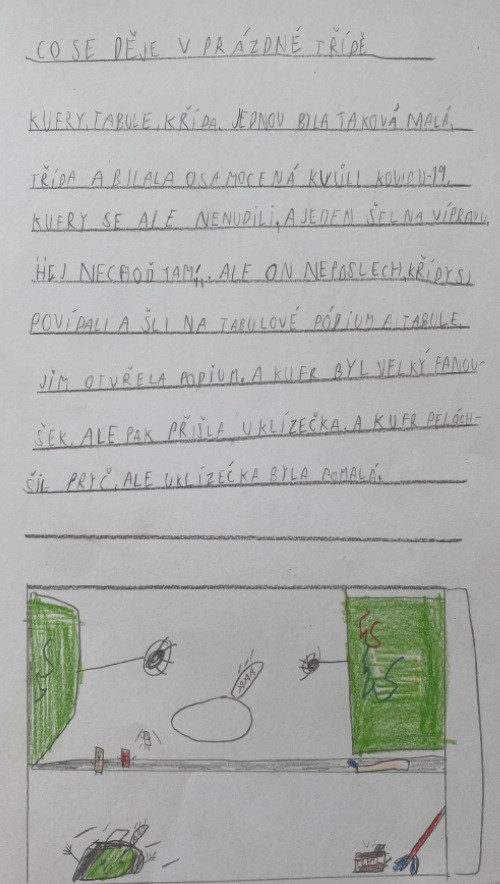 CO SE DĚJE V PRÁZDNÉ TŘÍDĚ
KUFRY, TABULE, KŘÍDA. JEDNOU BILA TAKOVÁ MALÁ,
TŘÍDA A BILALA OSAMOCENÁ KVŮLI KOVIDU-19.
KUFRY SE ALE NENUDILI, A JEDEN ŠEL NA VÍPRAVU,
HEJ NECHOĎ TAM!,, ALE ON NEPOSLECH, KŘÍDY SI
POVÍDALI A ŠLI NA TABULOVÉ PÓDIUM A TABULE.
JIM OTVŘELA PODIUM. A KUFR BYL VELKÝ FANOU-
ŠEK. ALE PAK PŘIŠLA UKLÍZEČKA. A KUFR PELÁCH-
ŠIL PRYČ, ALE UKLÍZEČKA BYLA POMALÁ.